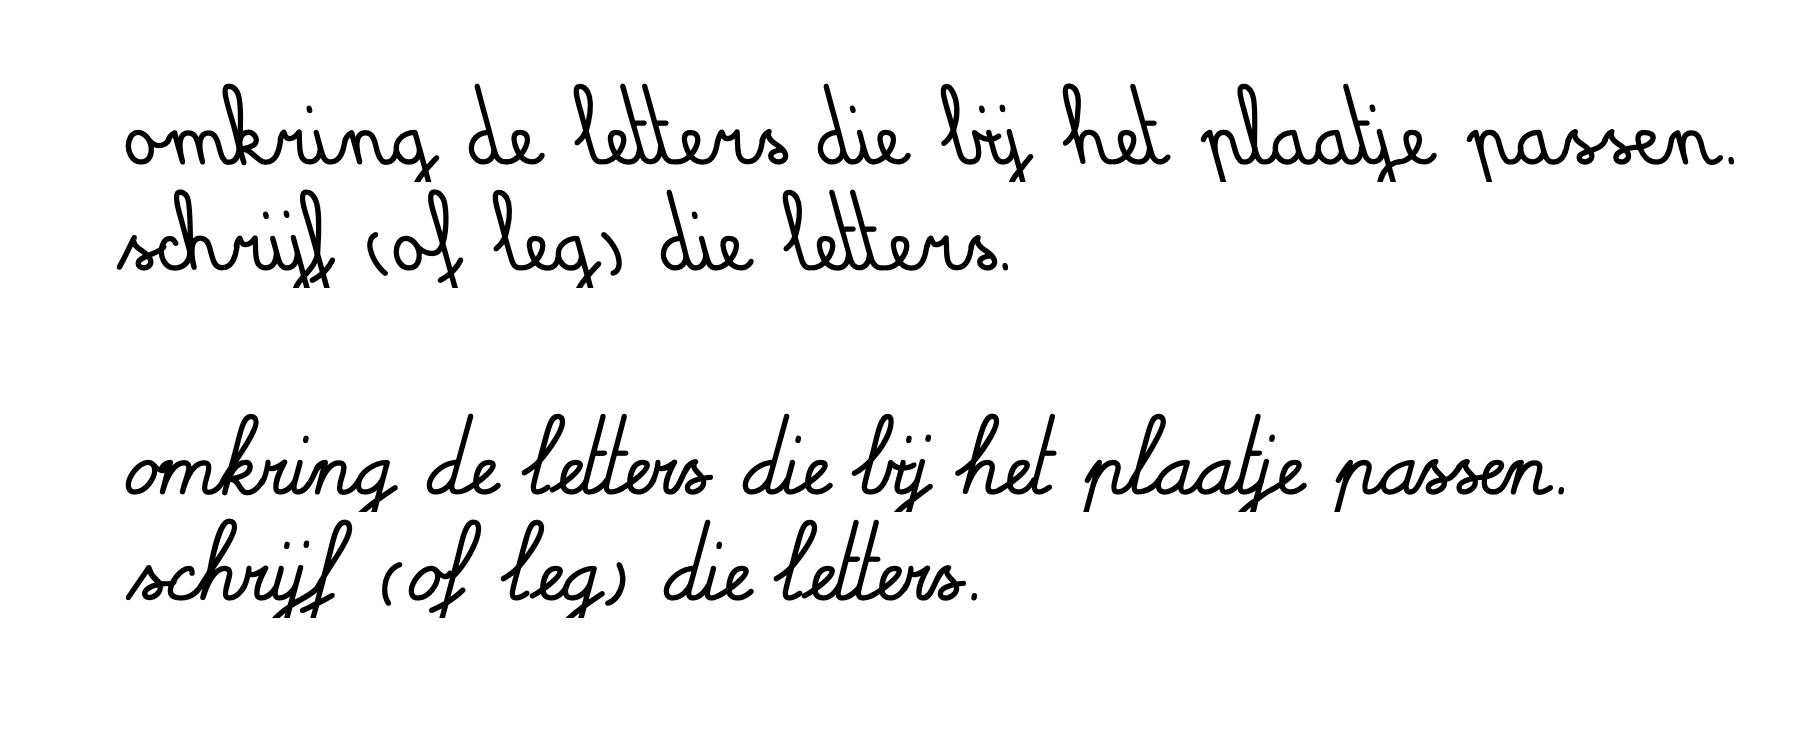 omkring de letters die bij het plaatje passen.
schrijf (of leg) die letters.
omkring de letters die bij het plaatje passen.
schrijf (of leg) die letters.